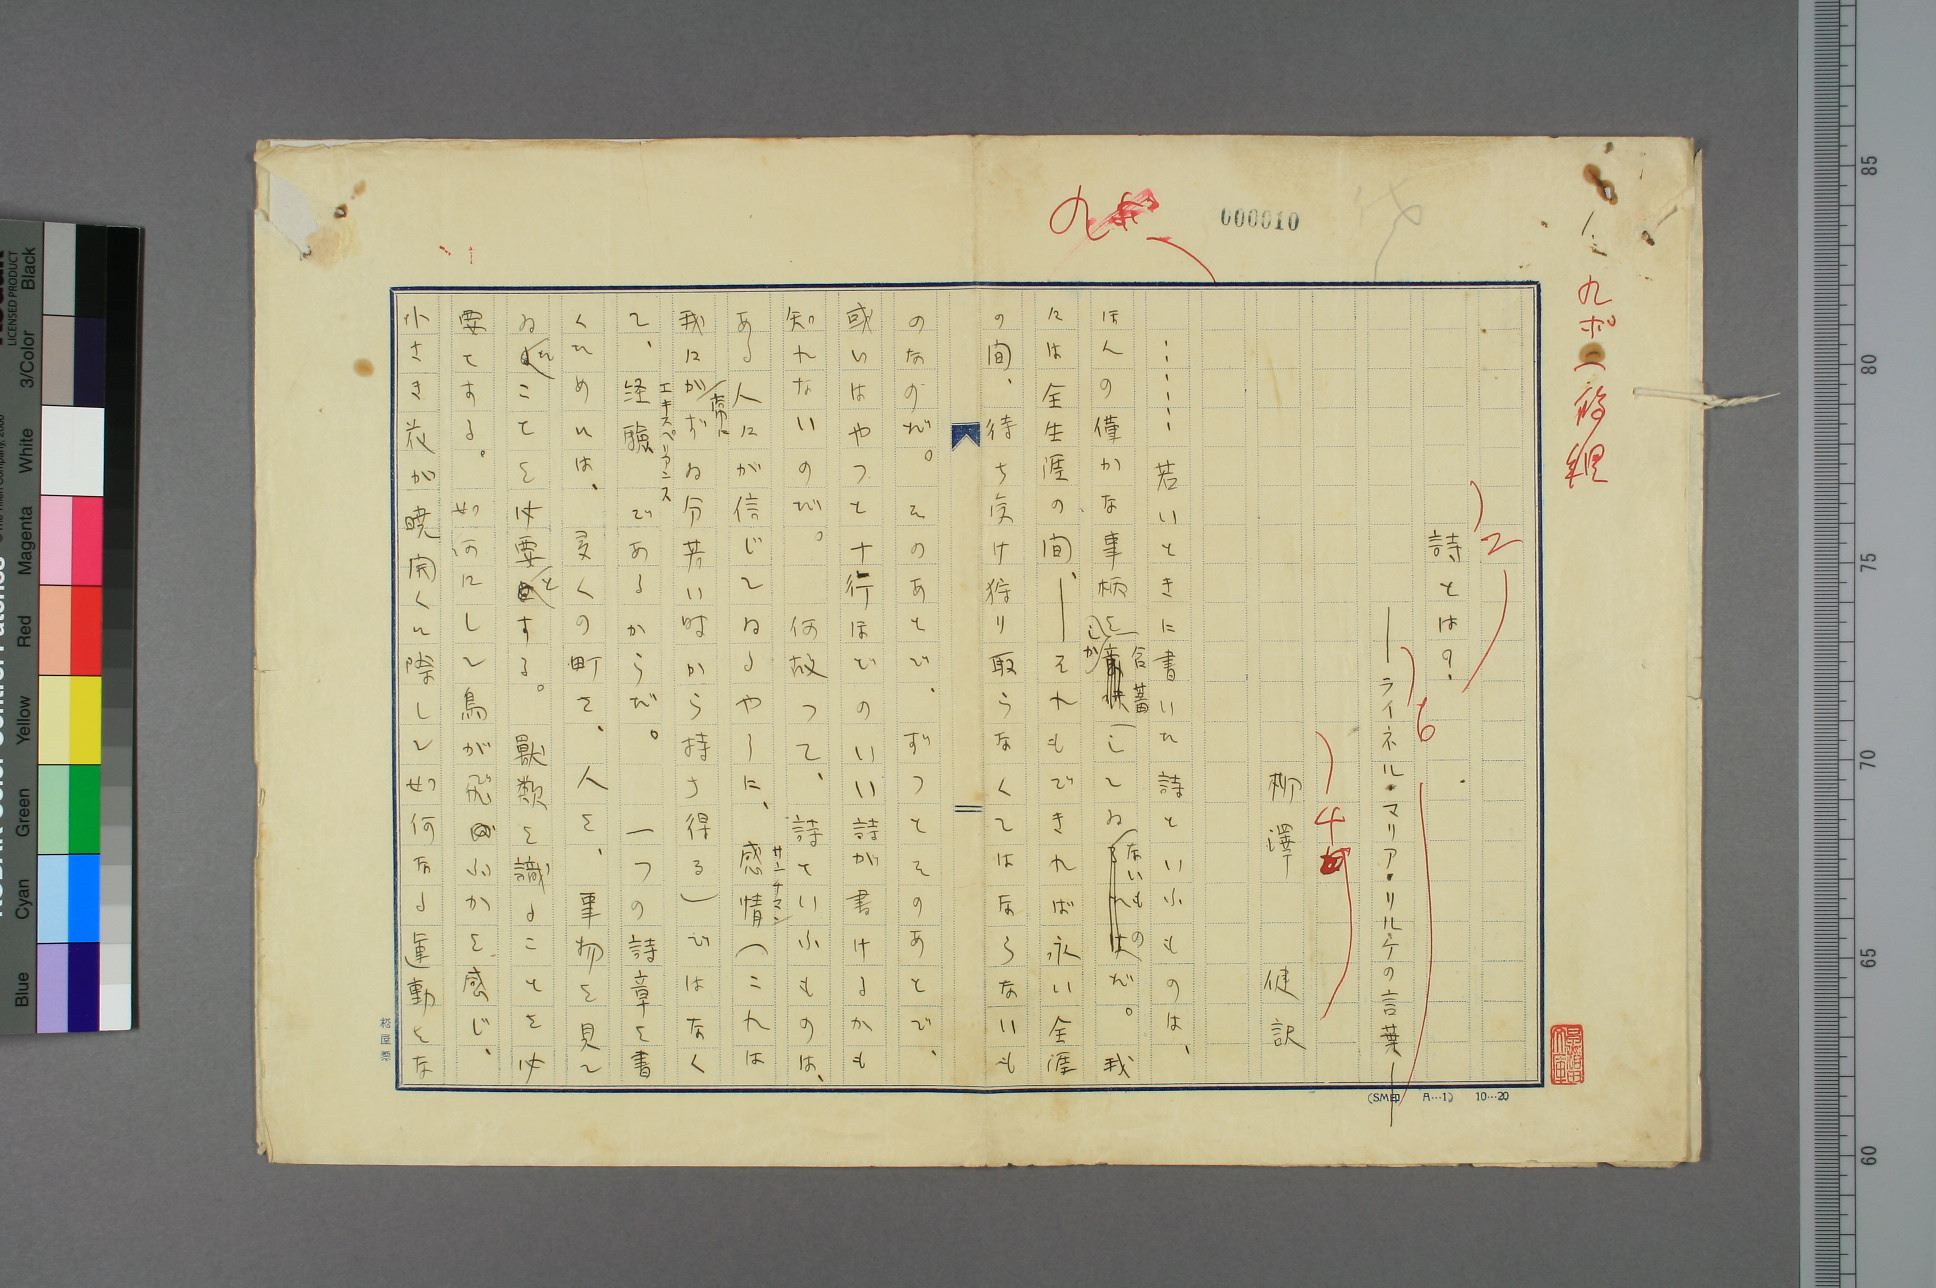 九ポ二段組
000010
詩とは?
2
―ライネル・マリア・リルケの言葉―
6
柳澤 健訳
4
……若いときに書いた詩といふものは、
ほんの僅かな事柄しか含蓄してゐないものだ。我
には全生涯の間、―それもできれば永い全涯
の間、待ち受け狩り取らなくてはならないも
のなのだ。そのあとで、ずつとそのあとで、
或いはやつと十行ほどのいい詩が書けるかも
知れないのだ。何故つて、詩といふものは、
ある人にが信じてゐるやうに、感情(これは
サンチマン
我にがずゐ分若い時から持ち得る)ではなく
常に
て、経験であるからだ。一つの詩章を書
エキスペリアンス
くためには、多くの町を、人を、事物を見て
ゐたことを必要とする。獣類を識ることを必
要とする。如何にして鳥が飛ぶかを感じ、
小さき花が暁開くに際して如何なる運動をな
松屋製
(SM印 A…1) 10…20
Black
3/Color
White
Magenta
Red
Yellow
Green
Cyan
Blue
LICENSED PRODUCT
85
80
75
70
65
60